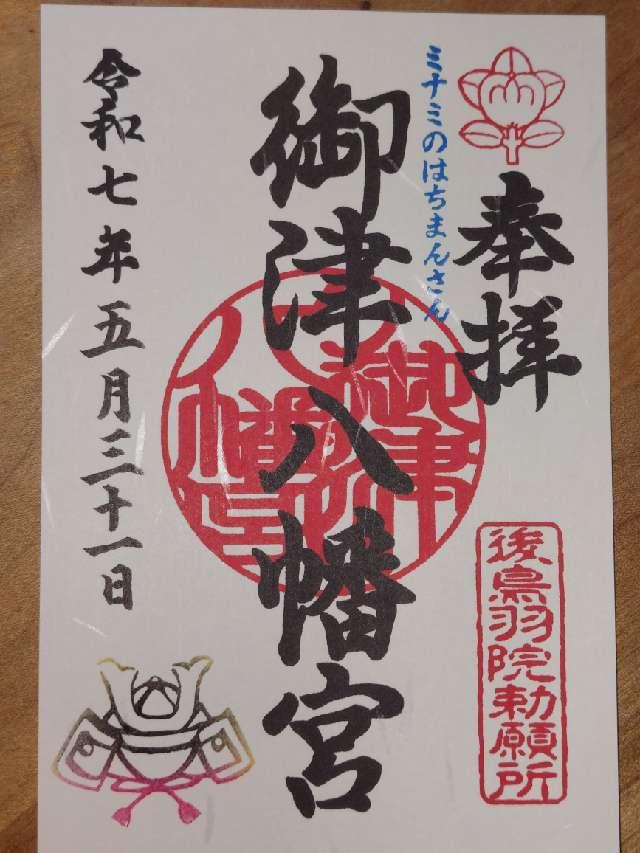 奉拝
ミナミのはちまんさん
御津八幡宮
御津八幡宮
後鳥羽院勅願所
令和七年五月三十一日